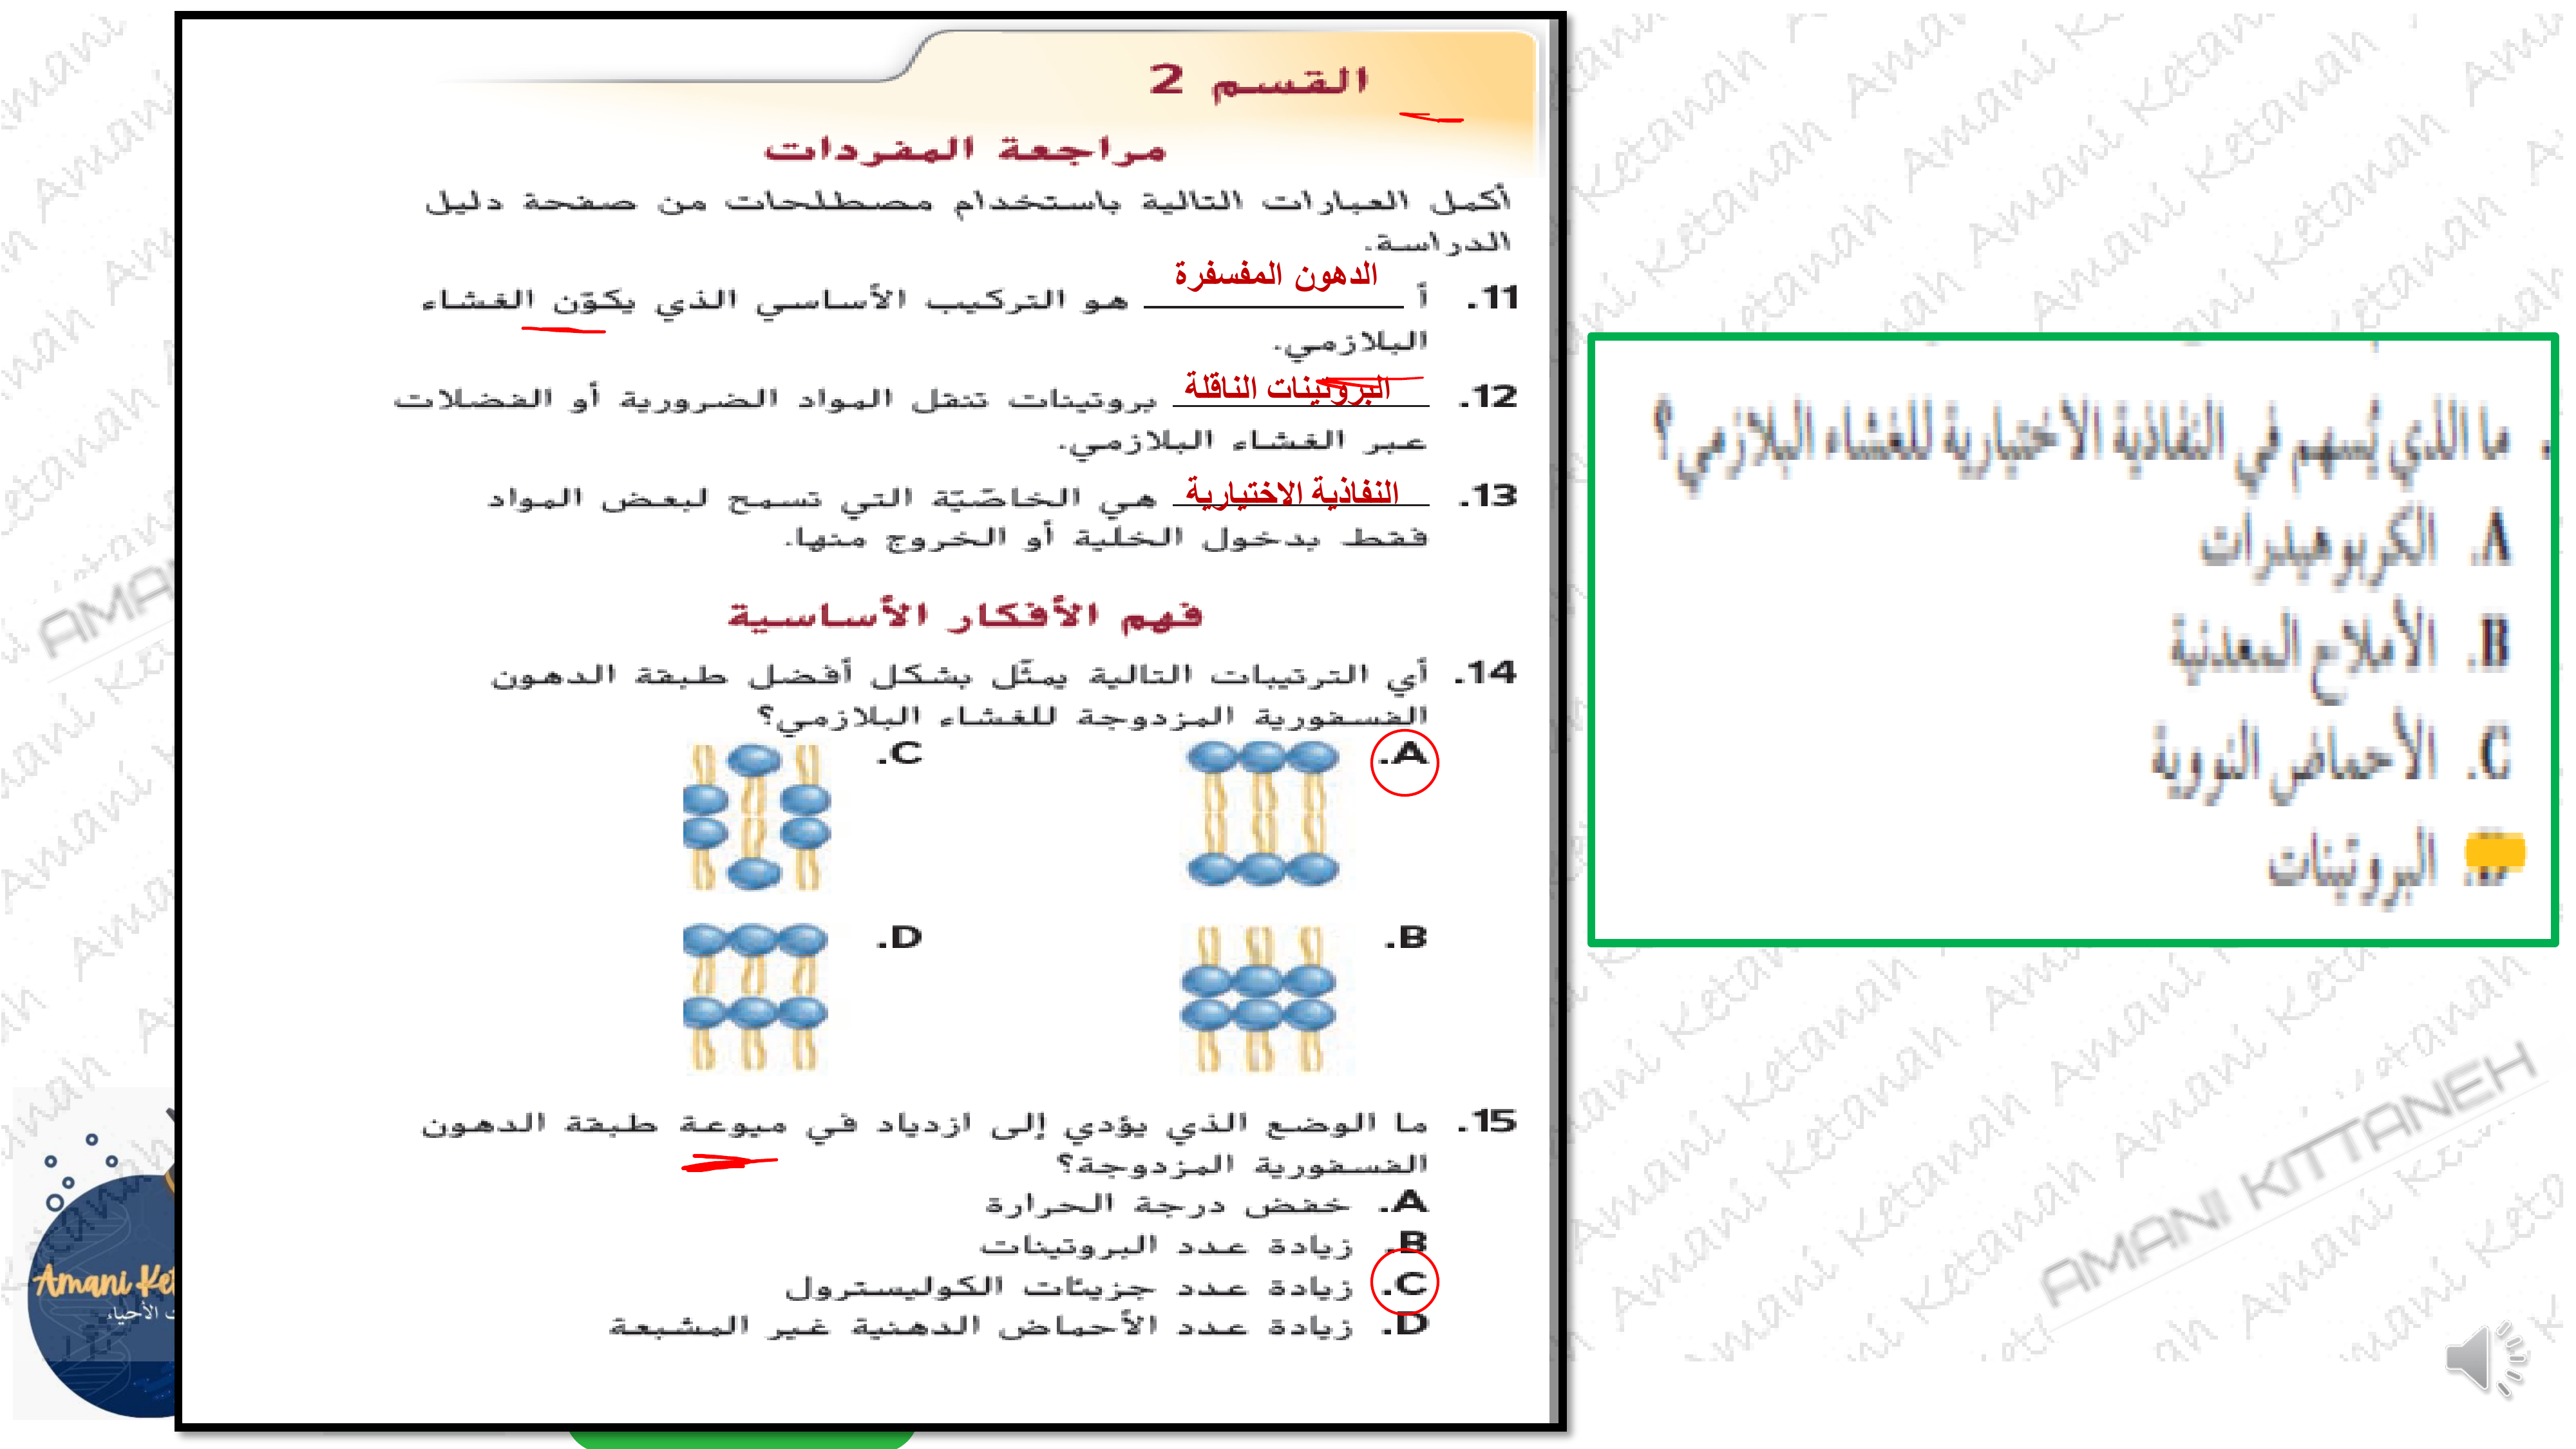 القسم 2
مراجعة المفردات
أكمل العبارات التالية باستخدام مصطلحات من صفحة دليل
الدراسة.
11. أ الدهون المفسفرة هو التركيب الأساسي الذي يكوّن الغشاء
البلازمي.
12. البروتينات الناقلة بروتينات تنقل المواد الضرورية أو الفضلات
عبر الغشاء البلازمي.
13. النفاذية الاختيارية هي الخاصّيّة التي تسمح لبعض المواد
فقط بدخول الخلية أو الخروج منها.
فهم الأفكار الأساسية
14. أي الترتيبات التالية يمثّل بشكل أفضل طبقة الدهون
الفسفورية المزدوجة للغشاء البلازمي؟
A. C.
B. D.
15. ما الوضع الذي يؤدي إلى ازدياد في ميوعة طبقة الدهون
الفسفورية المزدوجة؟
A. خفض درجة الحرارة
B. زيادة عدد البروتينات
C. زيادة عدد جزيئات الكوليسترول
D. زيادة عدد الأحماض الدهنية غير المشبعة
ما الذي يُسهم في النفاذية الاختيارية للغشاء البلازمي؟
A. الكربوهيدرات
B. الأملاح المعدنية
C. الأحماض النووية
البروتينات
AMANI KITTANEH
Amani
الأحياء